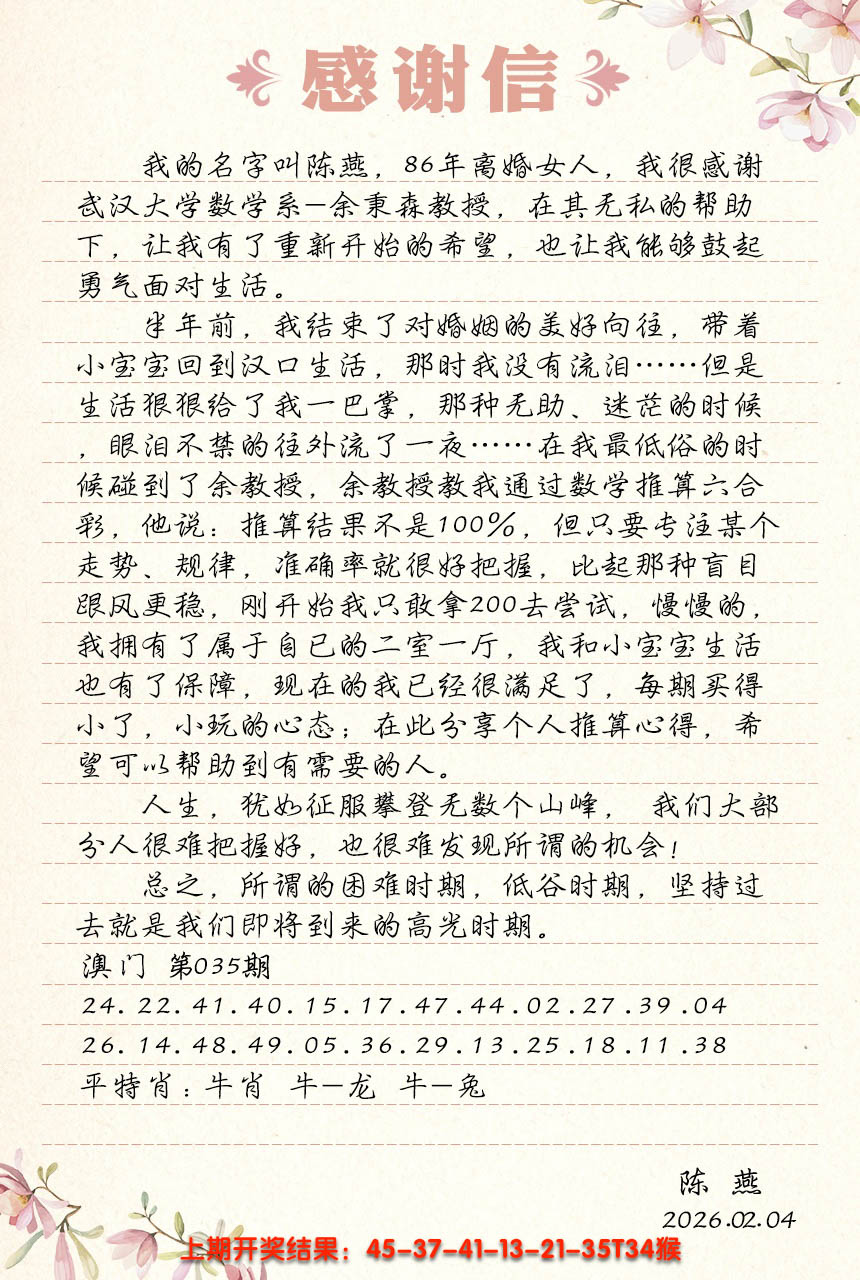 感谢信
我的名字叫陈燕，86年离婚女人，我很感谢
武汉大学数学系-余秉森教授，在其无私的帮助
下，让我有了重新开始的希望，也让我能够鼓起
勇气面对生活。
半年前，我结束了对婚姻的美好向往，带着
小宝宝回到汉口生活，那时我没有流泪……但是
生活狠狠给了我一巴掌，那种无助、迷茫的时候
，眼泪不禁的往外流了一夜……在我最低俗的时
候碰到了余教授，余教授教我通过数学推算六合
彩，他说：推算结果不是100%，但只要专注某个
走势、规律，准确率就很好把握，比起那种盲目
跟风更稳，刚开始我只敢拿200去尝试，慢慢的，
我拥有了属于自已的二室一厅，我和小宝宝生活
也有了保障，现在的我已经很满足了，每期买得
小了，小玩的心态；在此分享个人推算心得，希
望可以帮助到有需要的人。
人生，犹如征服攀登无数个山峰， 我们大部
分人很难把握好，也很难发现所谓的机会！
总之，所谓的困难时期，低谷时期，坚持过
去就是我们即将到来的高光时期。
澳门 第035期
24.22.41.40.15.17.47.44.02.27.39.04
26.14.48.49.05.36.29.13.25.18.11.38
平特肖：牛肖 牛-龙 牛-兔
陈 燕
2026.02.04
上期开奖结果：45-37-41-13-21-35T34猴